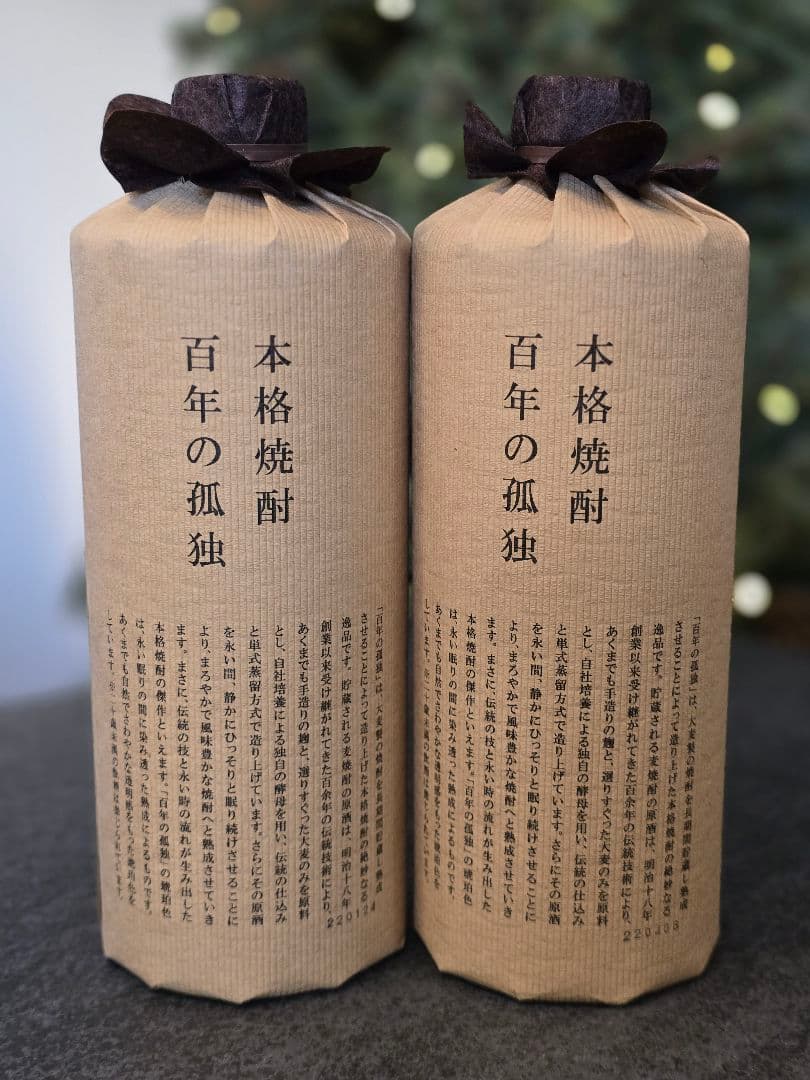 本格焼酎
百年の孤独
「百年の孤独」は、大麦製の焼酎を長期間貯蔵し熟成
させることによって造り上げた本格焼酎の絶妙なる
逸品です。貯蔵される麦焼酎の原酒は、明治十八年
創業以来受け継がれてきた百余年の伝統技術により、
あくまでも手造りの麹と、選りすぐった大麦のみを原料
とし、自社培養による独自の酵母を用い、伝統の仕込み
と単式蒸留方式で造り上げています。さらにその原酒
を永い間、静かにひっそりと眠り続けさせることに
より、まろやかで風味豊かな焼酎へと熟成させていき
ます。まさに、伝統の技と永い時の流れが生み出した
本格焼酎の傑作といえます。「百年の孤独」の琥珀色
は、永い眠りの間に染み透った熟成によるものです。
あくまでも自然でさわやかな透明感をもった琥珀色を
しています。
220124
本格焼酎
百年の孤独
「百年の孤独」は、大麦製の焼酎を長期間貯蔵し熟成
させることによって造り上げた本格焼酎の絶妙なる
逸品です。貯蔵される麦焼酎の原酒は、明治十八年
創業以来受け継がれてきた百余年の伝統技術により、
あくまでも手造りの麹と、選りすぐった大麦のみを原料
とし、自社培養による独自の酵母を用い、伝統の仕込み
と単式蒸留方式で造り上げています。さらにその原酒
を永い間、静かにひっそりと眠り続けさせることに
より、まろやかで風味豊かな焼酎へと熟成させていき
ます。まさに、伝統の技と永い時の流れが生み出した
本格焼酎の傑作といえます。「百年の孤独」の琥珀色
は、永い眠りの間に染み透った熟成によるものです。
あくまでも自然でさわやかな透明感をもった琥珀色を
しています。